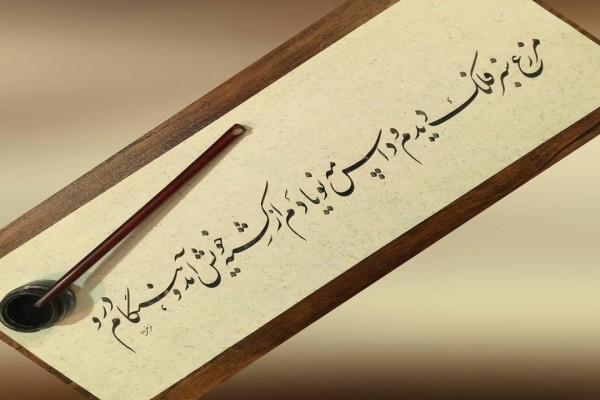 مزرع سبز فلک دیدم و داس مه نو یادم از کشته خویش آمد و هنگام درو